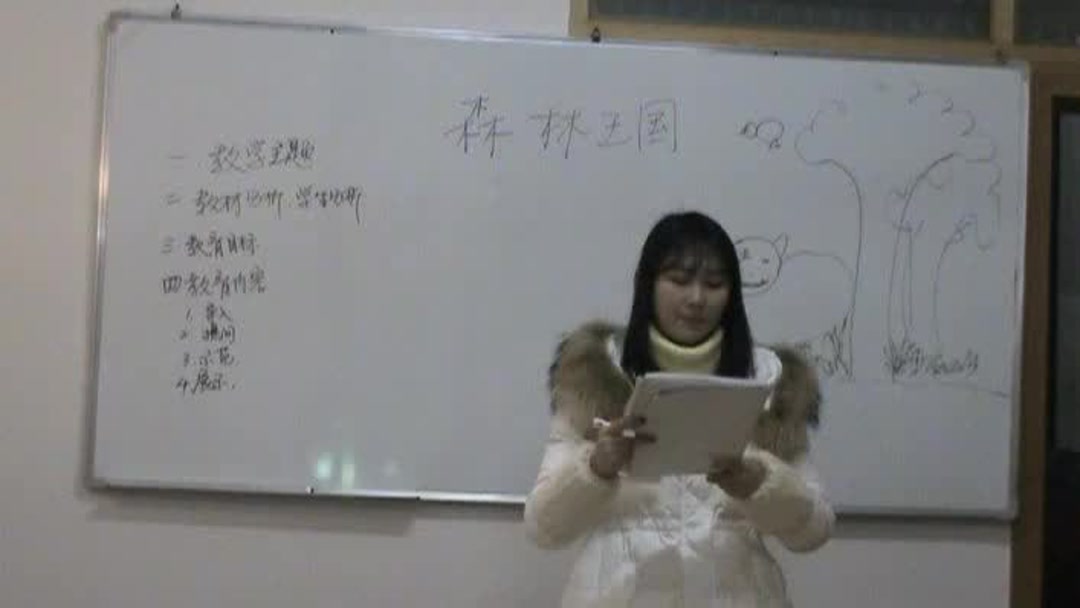 森林王国
一 教学主题
二 教材分析 学生分析
三 教育目标
四 教育内容
1. 导入
2. 提问
3. 示范
4. 展示.